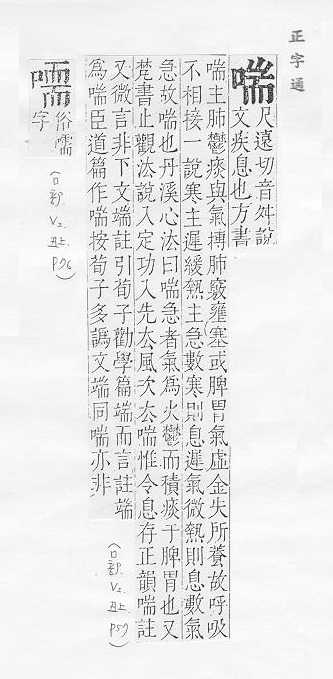 正字通
喘
尺遠切音舛說
文疾息也方書
喘主肺鬱痰與氣搏肺竅壅塞或脾胃氣虛金失所養故呼吸
不相接一說寒主遲緩熱主急數寒則息遲氣微熱則息數氣
急故喘也丹溪心法曰喘急者氣爲火鬱而積痰于脾胃也又
梵書止觀法說入定功入先去風次去喘惟令息存正韻喘註
又微言非下文端註引荀子勸學篇端而言註端
爲喘臣道篇作喘按荀子多譌文端同喘亦非
(口部 V2. 丑上 P57)
嚅
俗嚅
字
(口部 V2. 丑上 P76)